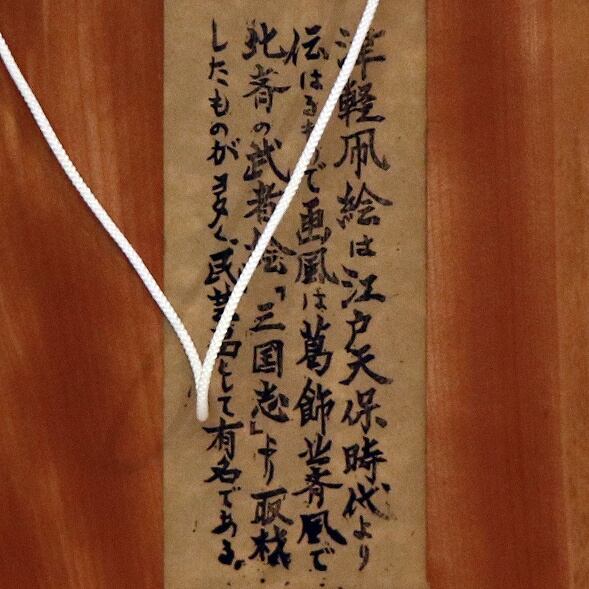 津軽凧絵は江戸天保時代より
伝はるもので画風は葛飾北斎風で
北斎の武者絵「三国志」より取材
したものが多く、民芸品として有名である。